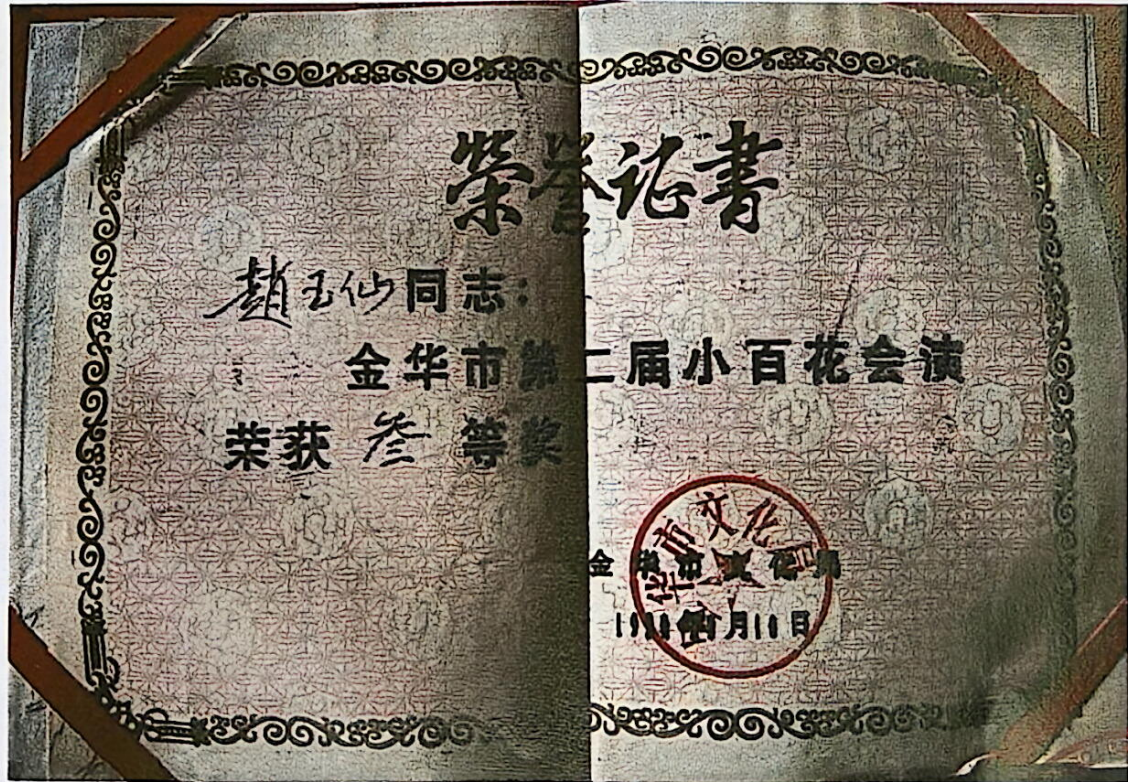 荣誉证書
趙玉仙同志:
金华市第二届小百花会演
荣获叁等奖
金华市文化局
月10日
金华市文化局